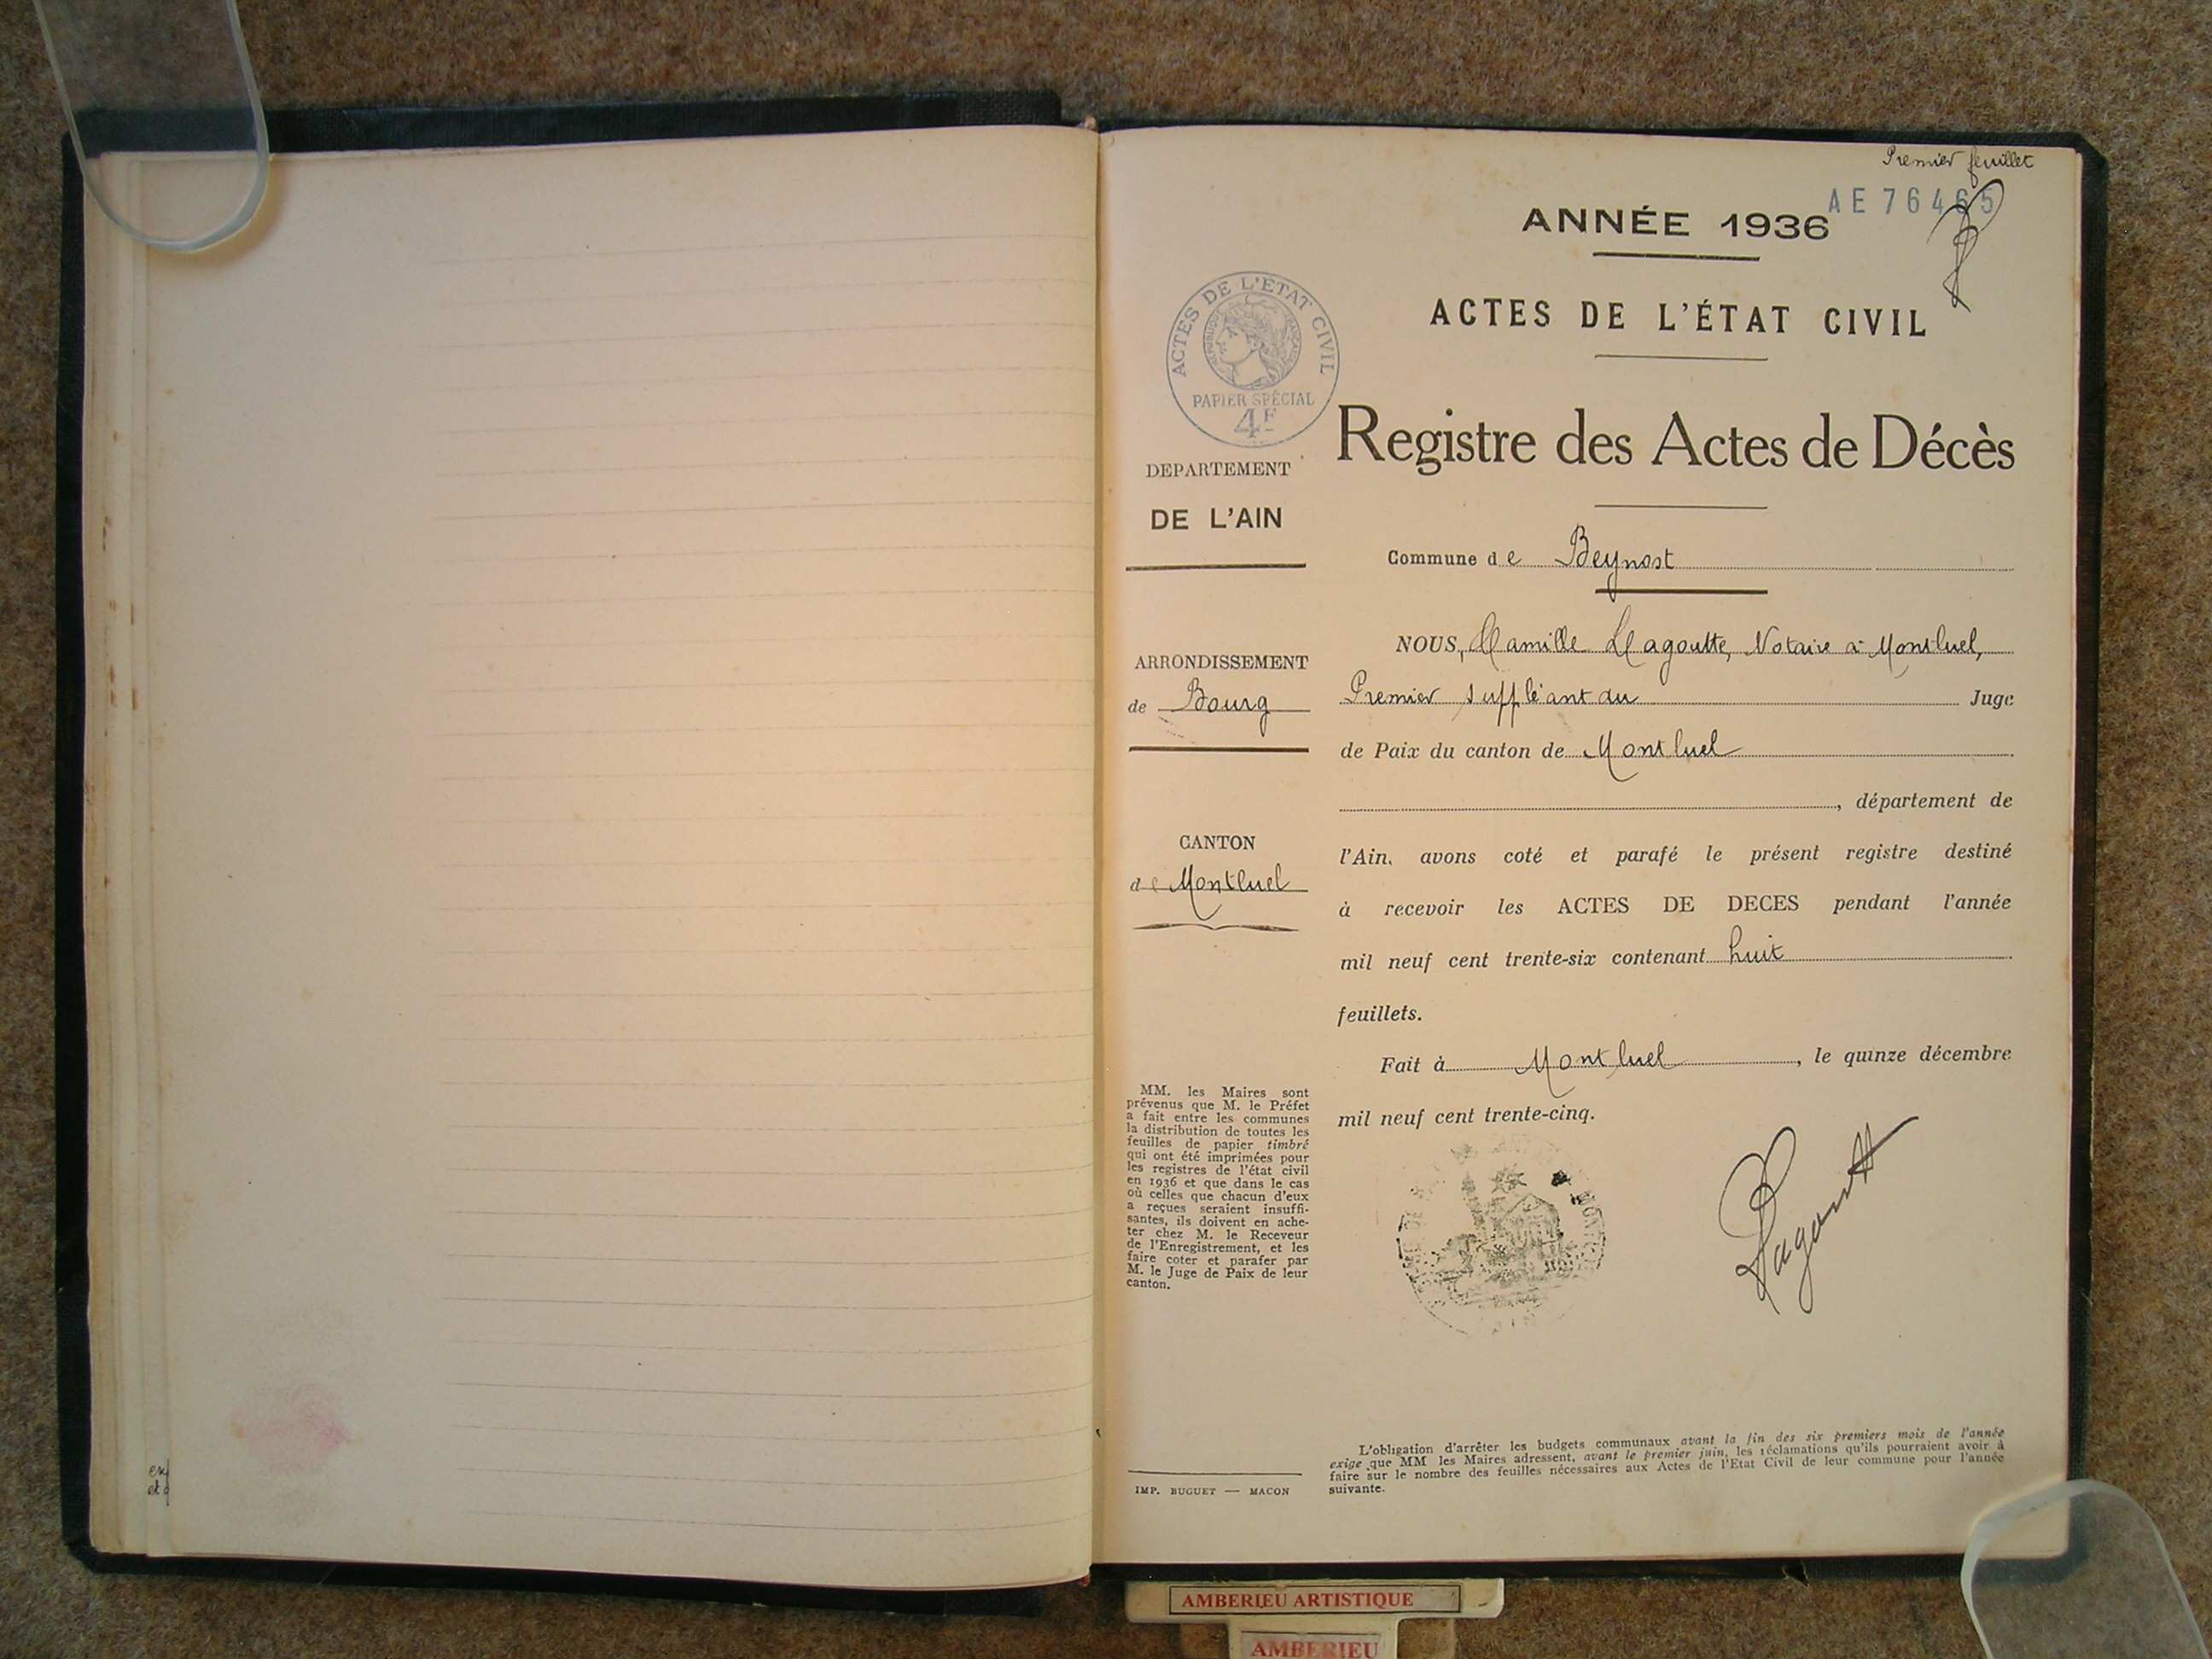 Premier feuillet
AE 76465
ANNÉE 1936
ACTES DE L'ÉTAT CIVIL
ACTES DE L'ÉTAT CIVIL
RÉPUBLIQUE FRANÇAISE
PAPIER SPÉCIAL
4F
Registre des Actes de Décès
DEPARTEMENT
DE L'AIN
Commune de Beynost
NOUS, Camille Lagoutte, Notaire à Montluel,
Premier suppléant du Juge
de Paix du canton de Montluel
, département de
l'Ain, avons coté et parafé le présent registre destiné
à recevoir les ACTES DE DECES pendant l'année
mil neuf cent trente-six contenant huit
feuillets.
Fait à Montluel, le quinze décembre
mil neuf cent trente-cinq.
Lagoutte
ARRONDISSEMENT
de Bourg
CANTON
de Montluel
MM. les Maires sont
prévenus que M. le Préfet
a fait entre les communes
la distribution de toutes les
feuilles de papier timbré
qui ont été imprimées pour
les registres de l'état civil
en 1936 et que dans le cas
où celles que chacun d'eux
a reçues seraient insuffi-
santes, ils doivent en ache-
ter chez M. le Receveur
de l'Enregistrement, et les
faire coter et parafer par
M. le Juge de Paix de leur
canton.
L'obligation d'arrêter les budgets communaux avant la fin des six premiers mois de l'année
exige que MM les Maires adressent, avant le premier juin, les réclamations qu'ils pourraient avoir à
faire sur le nombre des feuilles nécessaires aux Actes de l'Etat Civil de leur commune pour l'année
suivante.
IMP. BUGUET — MACON
AMBERIEU ARTISTIQUE
AMBERIEU